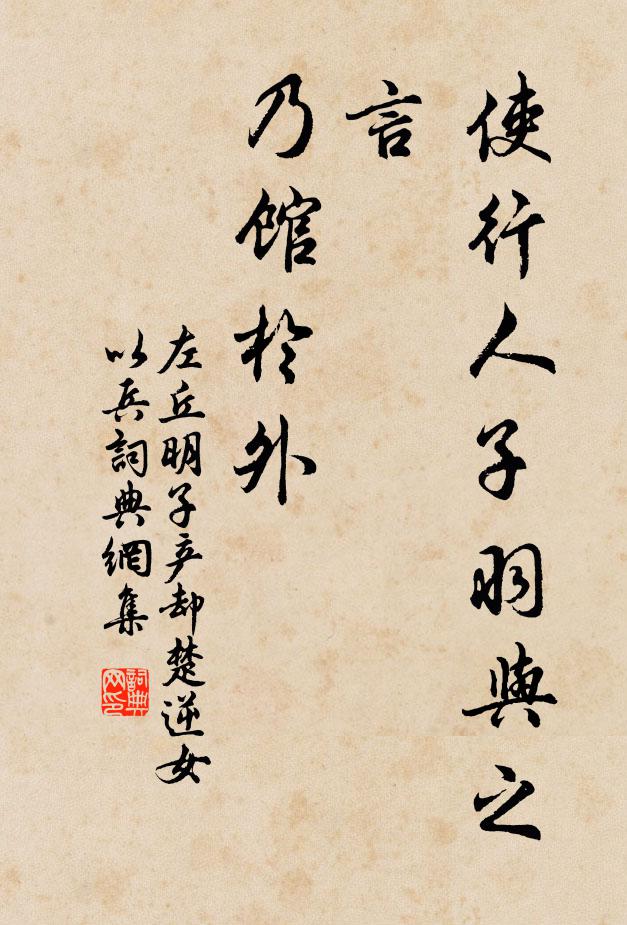 使行人子羽與之
言
乃館於外
左丘明子产却楚逆女
以兵詞典網集
詞典
网印